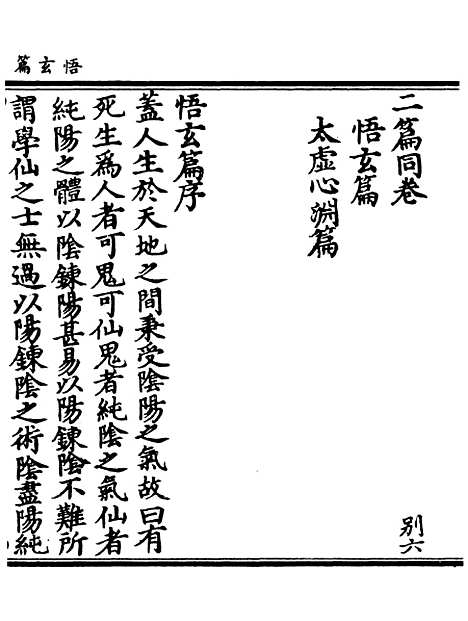 悟玄篇
二篇同卷
別六
悟玄篇
太虛心淵篇
悟玄篇序
蓋人生於天地之間秉受陰陽之氣故曰有
死生為人者可鬼可仙鬼者純陰之氣仙者
純陽之體以陰鍊陽甚易以陽鍊陰不難所
謂學仙之士無過以陽鍊陰之術陰盡陽純